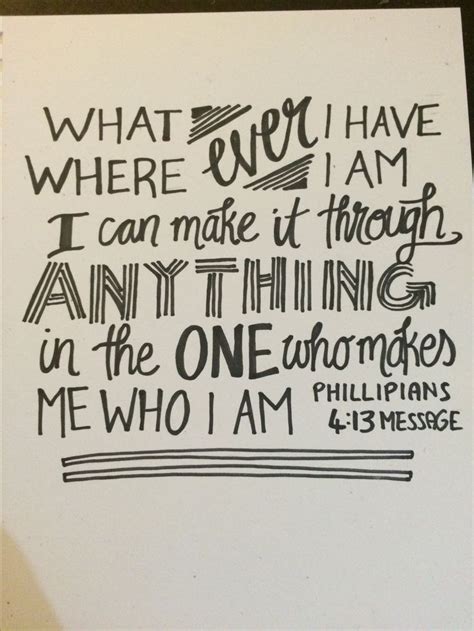 WHAT ever I HAVE
WHERE I AM
I can make it through
ANYTHING
in the ONE who makes
ME WHO I AM PHILLIPIANS
4:13 MESSAGE